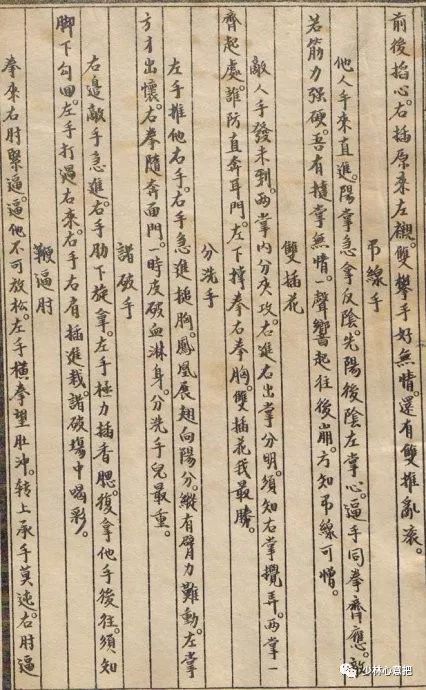 前後掐心。右插原來左襯。雙攀手好無情。還有雙推亂滾。
吊線手
他人年來直進。陽拿急拿反陰。先陽後陰左掌心。逼手同拳齊應。敵
若筋力强硬。吾有撻掌無情。一聲響起往後崩。方知吊線可憎。
雙插花
敵人手發未到。两掌内分夾攻。左進右出掌分明。須知右掌攪弄。两掌一
齊起處。誰防直奔耳門。左下擰拳右拳胸。雙插花我最勝。
分洗手
左手推他右手。右手急進搥胸。鳳凰展翅向陽分。縱有臂力難動。左掌
方才出懷。右拳隨奔面門。時度破血淋身。分洗手兒最重。
諸破手
右邊敵手急進。右手肋下旋拿。左手極力插香腮。復拿他手後往。須知
脚下勾回。左手打過右來。右手右肩插進栽。諸破塲中喝彩。
鞭逼肘
拳來右肘緊逼。逼他不可放松。左手橫拳望肚沖。转上承手莫迯。右肘逼
少林心意把